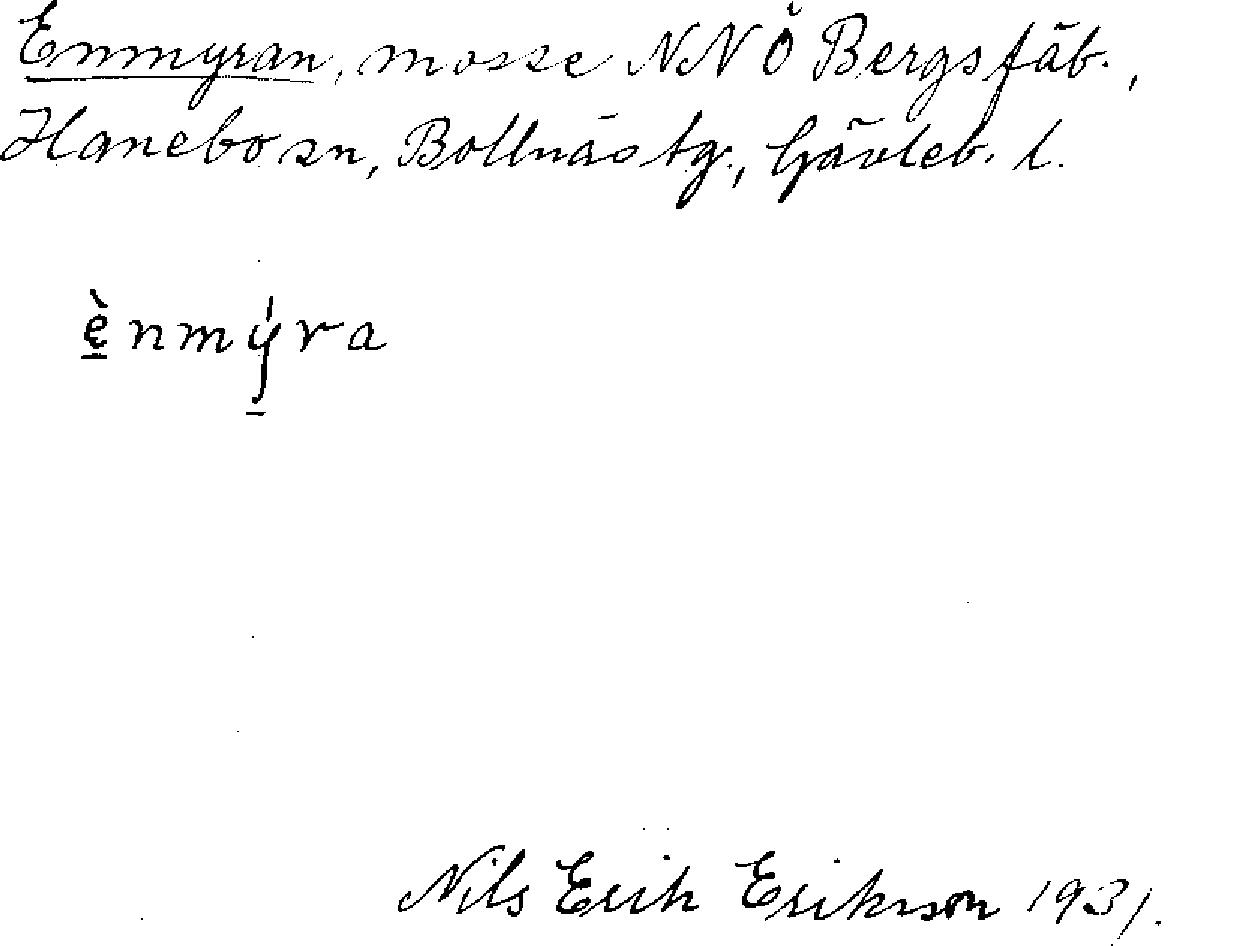 Enmyran, mosse NNÖ Bergs fäb.,
Hanebo sn, Bollnäs tg., Gävleb. l.
è̠nmý̠ra
Nils Erik Erikson 1931.